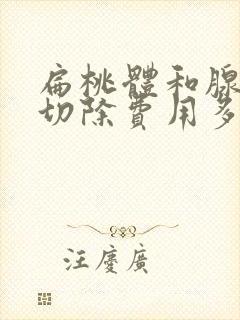 扁桃體和腺
切除費用多
汪慶廣